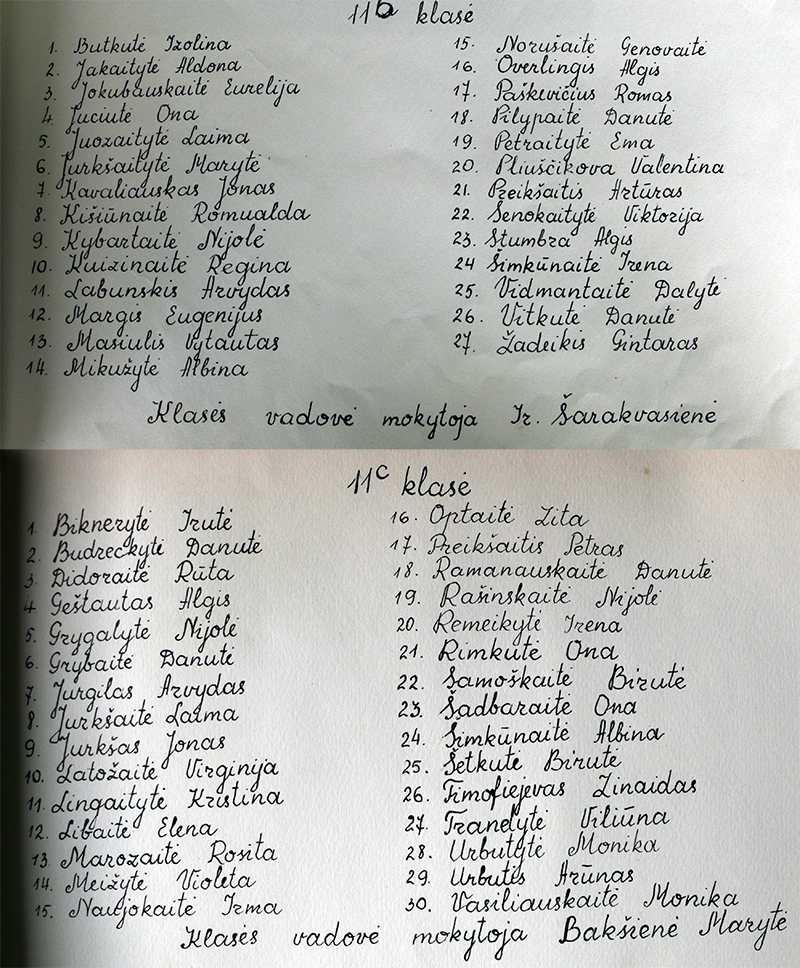 11b klasė
1. Butkutė Izolina
2. Jakaitytė Aldona
3. Jokubauskaitė Eurelija
4. Juciutė Ona
5. Juozaitytė Laima
6. Jurkšaitytė Marytė
7. Kavaliauskas Jonas
8. Kišiūnaitė Romualda
9. Kybartaitė Nijolė
10. Kuizinaitė Regina
11. Labunskis Arvydas
12. Margis Eugenijus
13. Masiulis Vytautas
14. Mikužytė Albina
15. Norušaitė Genovaitė
16. Overlingis Algis
17. Paškevičius Romas
18. Pilypaitė Danutė
19. Petraitytė Ema
20. Pliuščikova Valentina
21. Preikšaitis Artūras
22. Senokaitytė Viktorija
23. Stumbra Algis
24 Šimkūnaitė Irena
25. Vidmantaitė Dalytė
26. Vitkutė Danutė
27. Žadeikis Gintaras
Klasės vadovė mokytoja Ir. Šarakvasienė
11c klasė
1. Biknerytė Irutė
2. Budreckytė Danutė
3. Didoraitė Rūta
4. Geštautas Algis
5. Grygalytė Nijolė
6. Grybaitė Danutė
7. Jurgilas Arvydas
8. Jurkšaitė Laima
9. Jurkšas Jonas
10. Latožaitė Virginija
11. Lingaitytė Kristina
12. Libaitė Elena
13 Marozaitė Rosita
14. Meižytė Violeta
15. Naujokaitė Irma
16. Optaitė Zita
17. Preikšaitis Petras
18. Ramanauskaitė Danutė
19. Rašinskaitė Nijolė
20. Remeikytė Irena
21. Rimkutė Ona
22. Samoškaitė Birutė
23. Šadbaraitė Ona
24. Šimkūnaitė Albina
25. Šetkutė Birutė
26. Timofiejevas Zinaidas
27. Trandytė Viliūna
28. Urbutytė Monika
29. Urbutis Arūnas
30. Vasiliauskaitė Monika
Klasės vadovė mokytoja Bakšienė Marytė